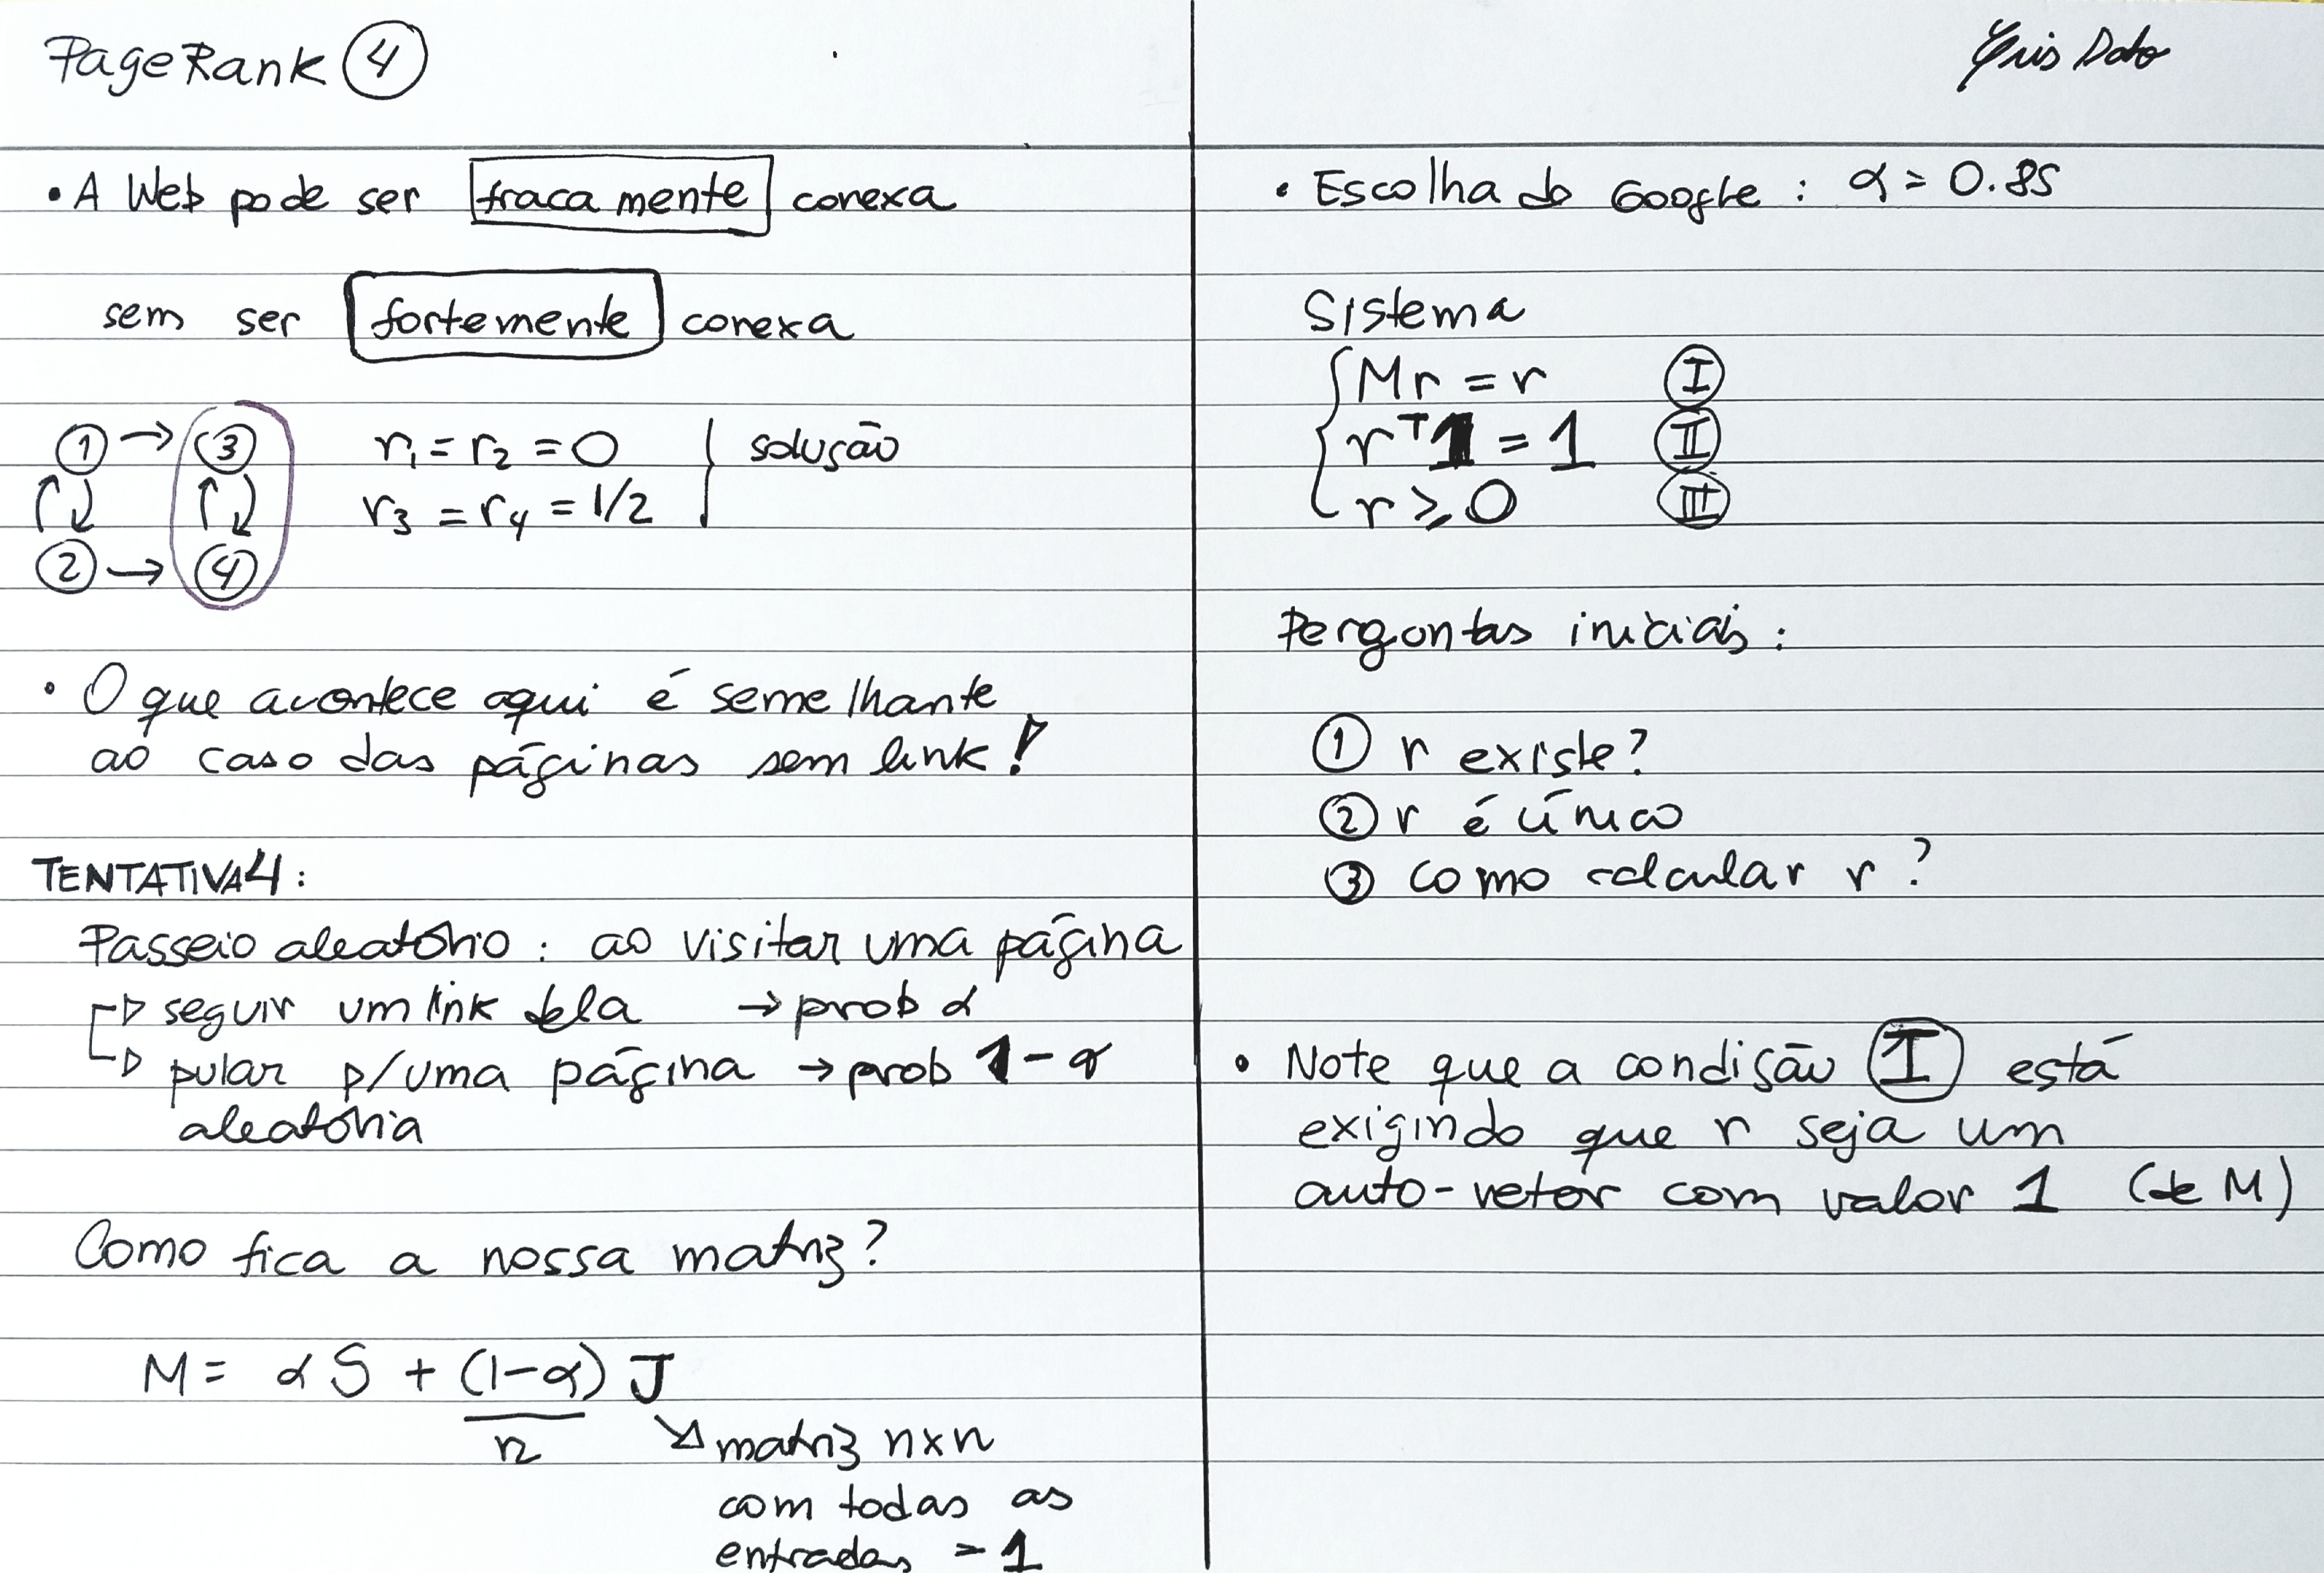 PageRank ④
• A Web pode ser fracamente conexa
sem ser fortemente conexa
① → ③ r₁ = r₂ = 0 solução
② → ④ r₃ = r₄ = 1/2
• O que acontece aqui é semelhante
ao caso das páginas sem link!
TENTATIVA 4:
Passeio aleatório: ao visitar uma página
seguir um link dela → prob α
pular p/ uma página → prob 1 - α
aleatória
Como fica a nossa matriz?
M = αS + (1-α)/n J
matriz n×n
com todas as
entradas = 1
• Escolha do Google: α = 0.85
Sistema
Mr = r Ⅰ
rᵀ1 = 1 Ⅱ
r ⩾ 0 Ⅲ
Perguntas iniciais:
① r existe?
② r é único
③ como calcular r?
• Note que a condição Ⅰ está
exigindo que r seja um
auto-vetor com valor 1 (de M)